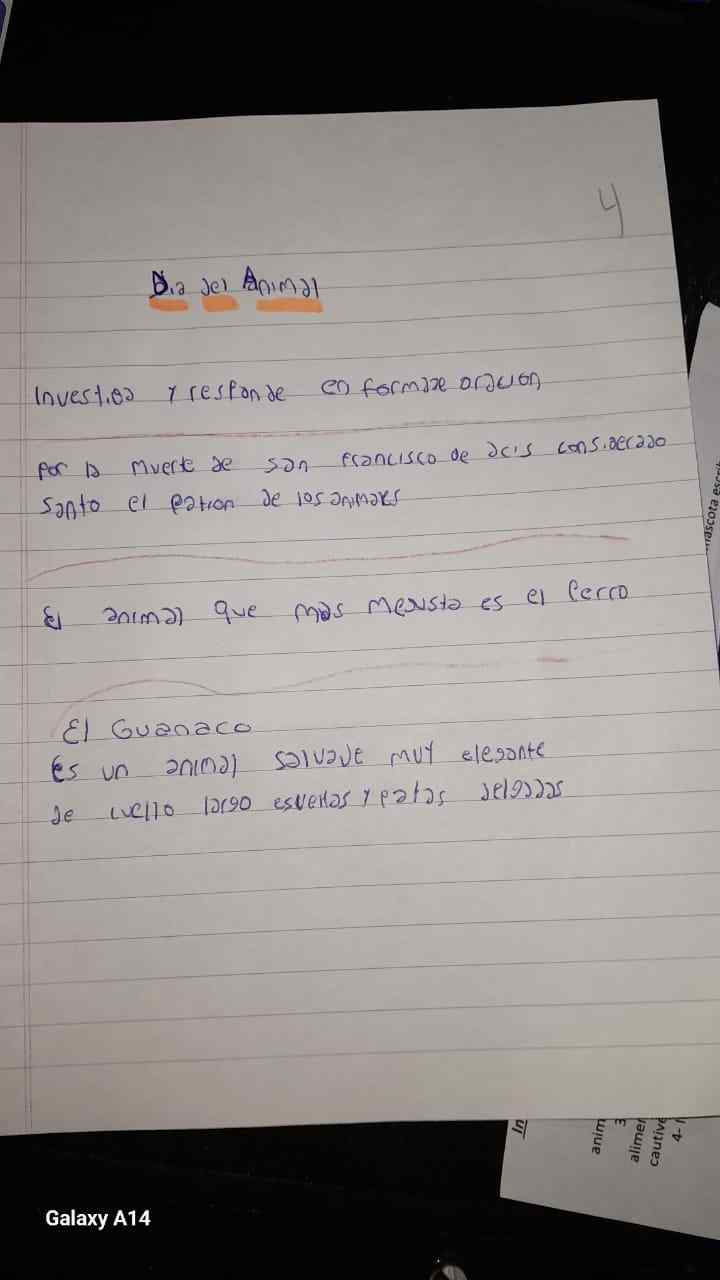 4
Dia del Animal
Investiga y responde en forma de oración
por la muerte de san francisco de acis considerado
santo el patron de los animales
El animal que mas me gusta es el perro
El Guanaco
Es un animal salvaje muy elegante
de cuello largo esveltas y patas delgadas
mascota escrib
In
anim
3
alimer
cautive
4-
Galaxy A14